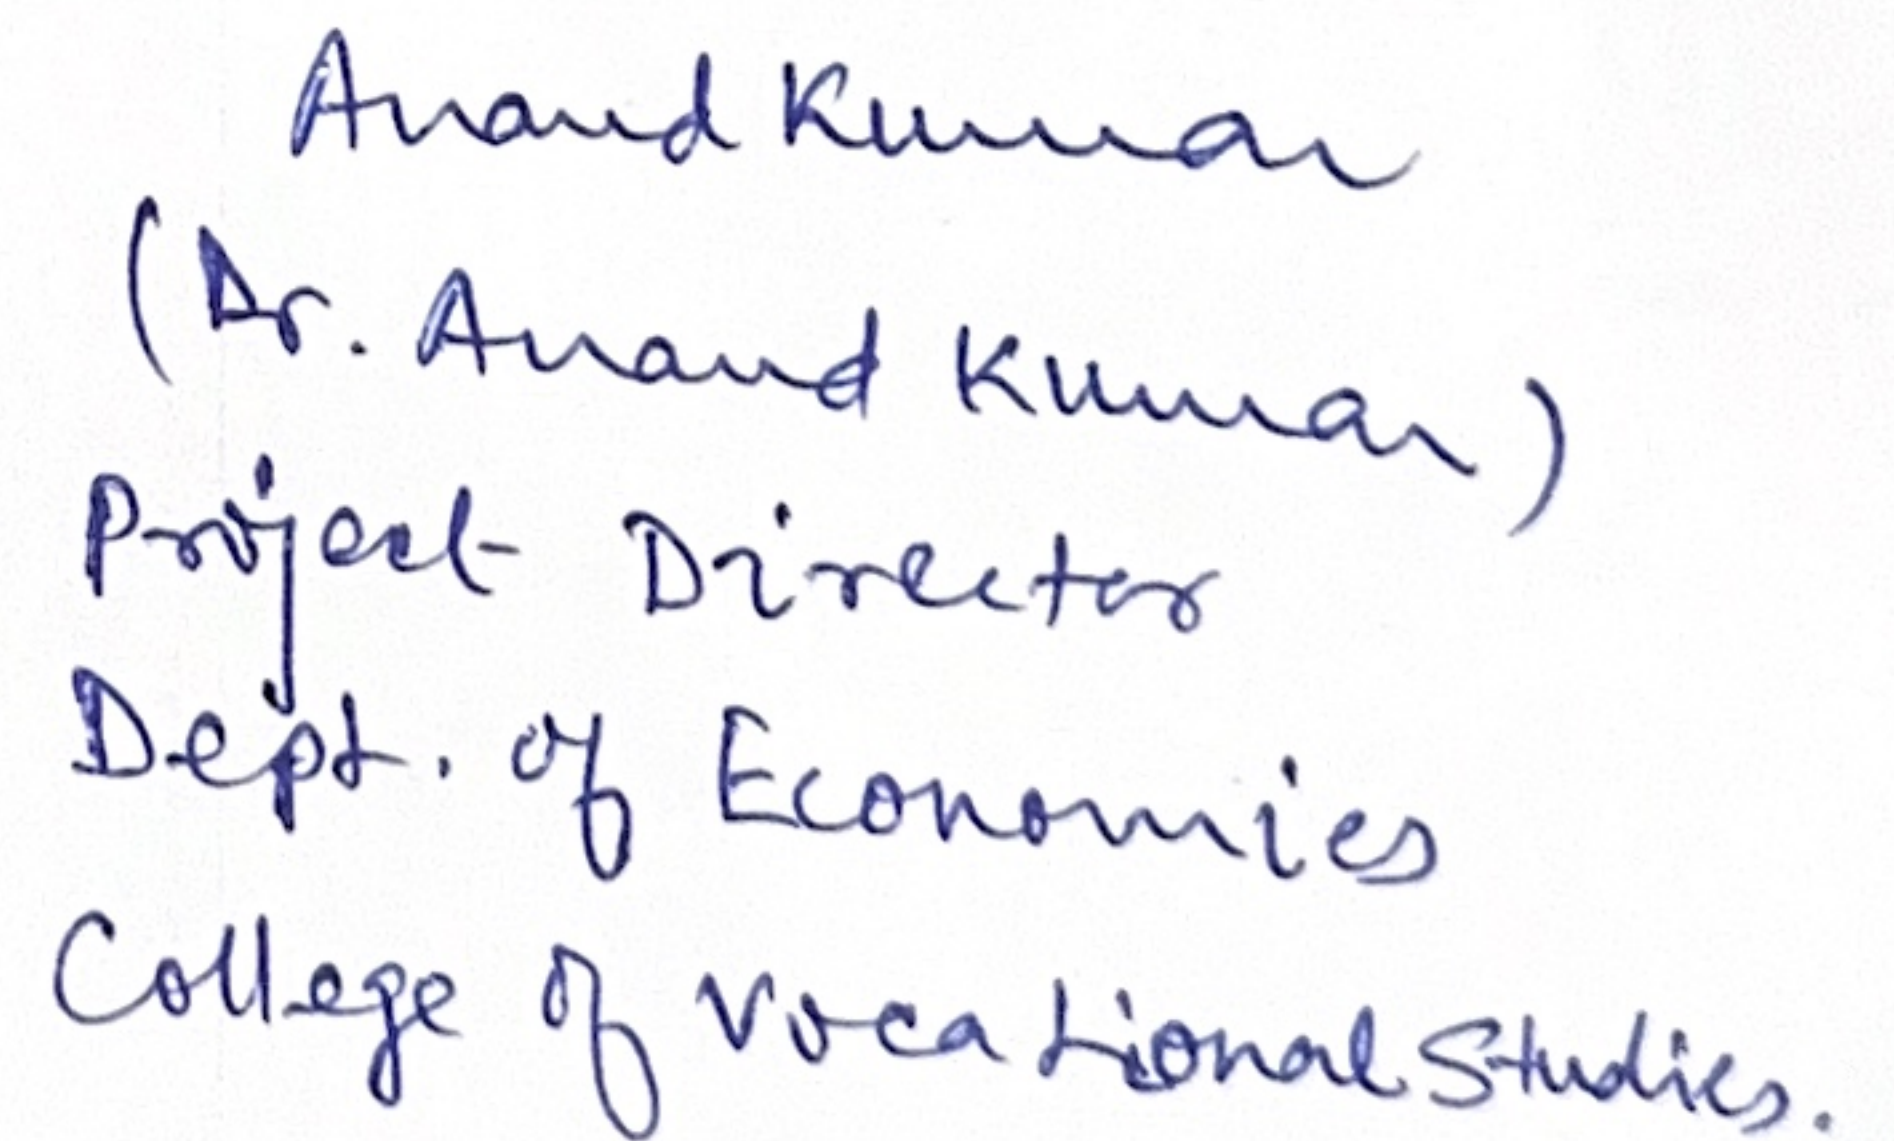 Anand Kumar
(Dr. Anand Kumar)
Project Director
Dept. of Economics
College of Vocational Studies.